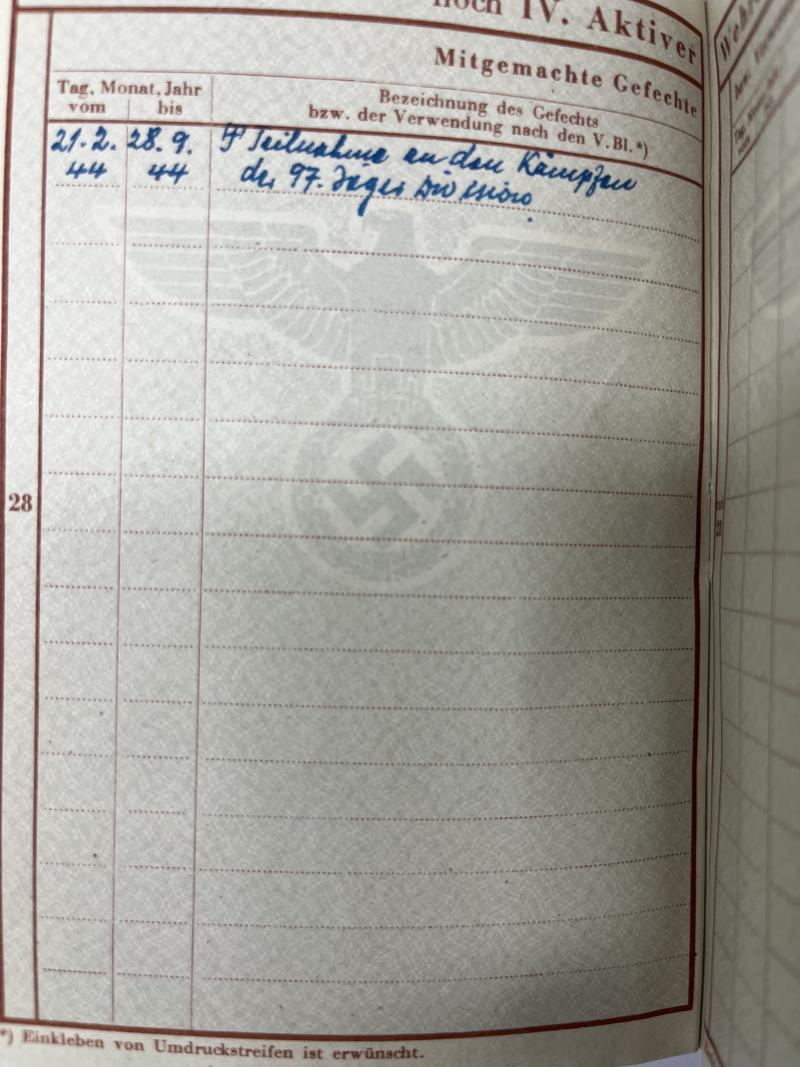 noch IV. Aktiver
Mitgemachte Gefechte
Tag, Monat, Jahr
vom bis
Bezeichnung des Gefechts
bzw. der Verwendung nach den V. Bl. *)
21.2. 28.9. Teilnahme an den Kämpfen
44 44 der 97. Jäger Division
28
*) Einkleben von Umdruckstreifen ist erwünscht.